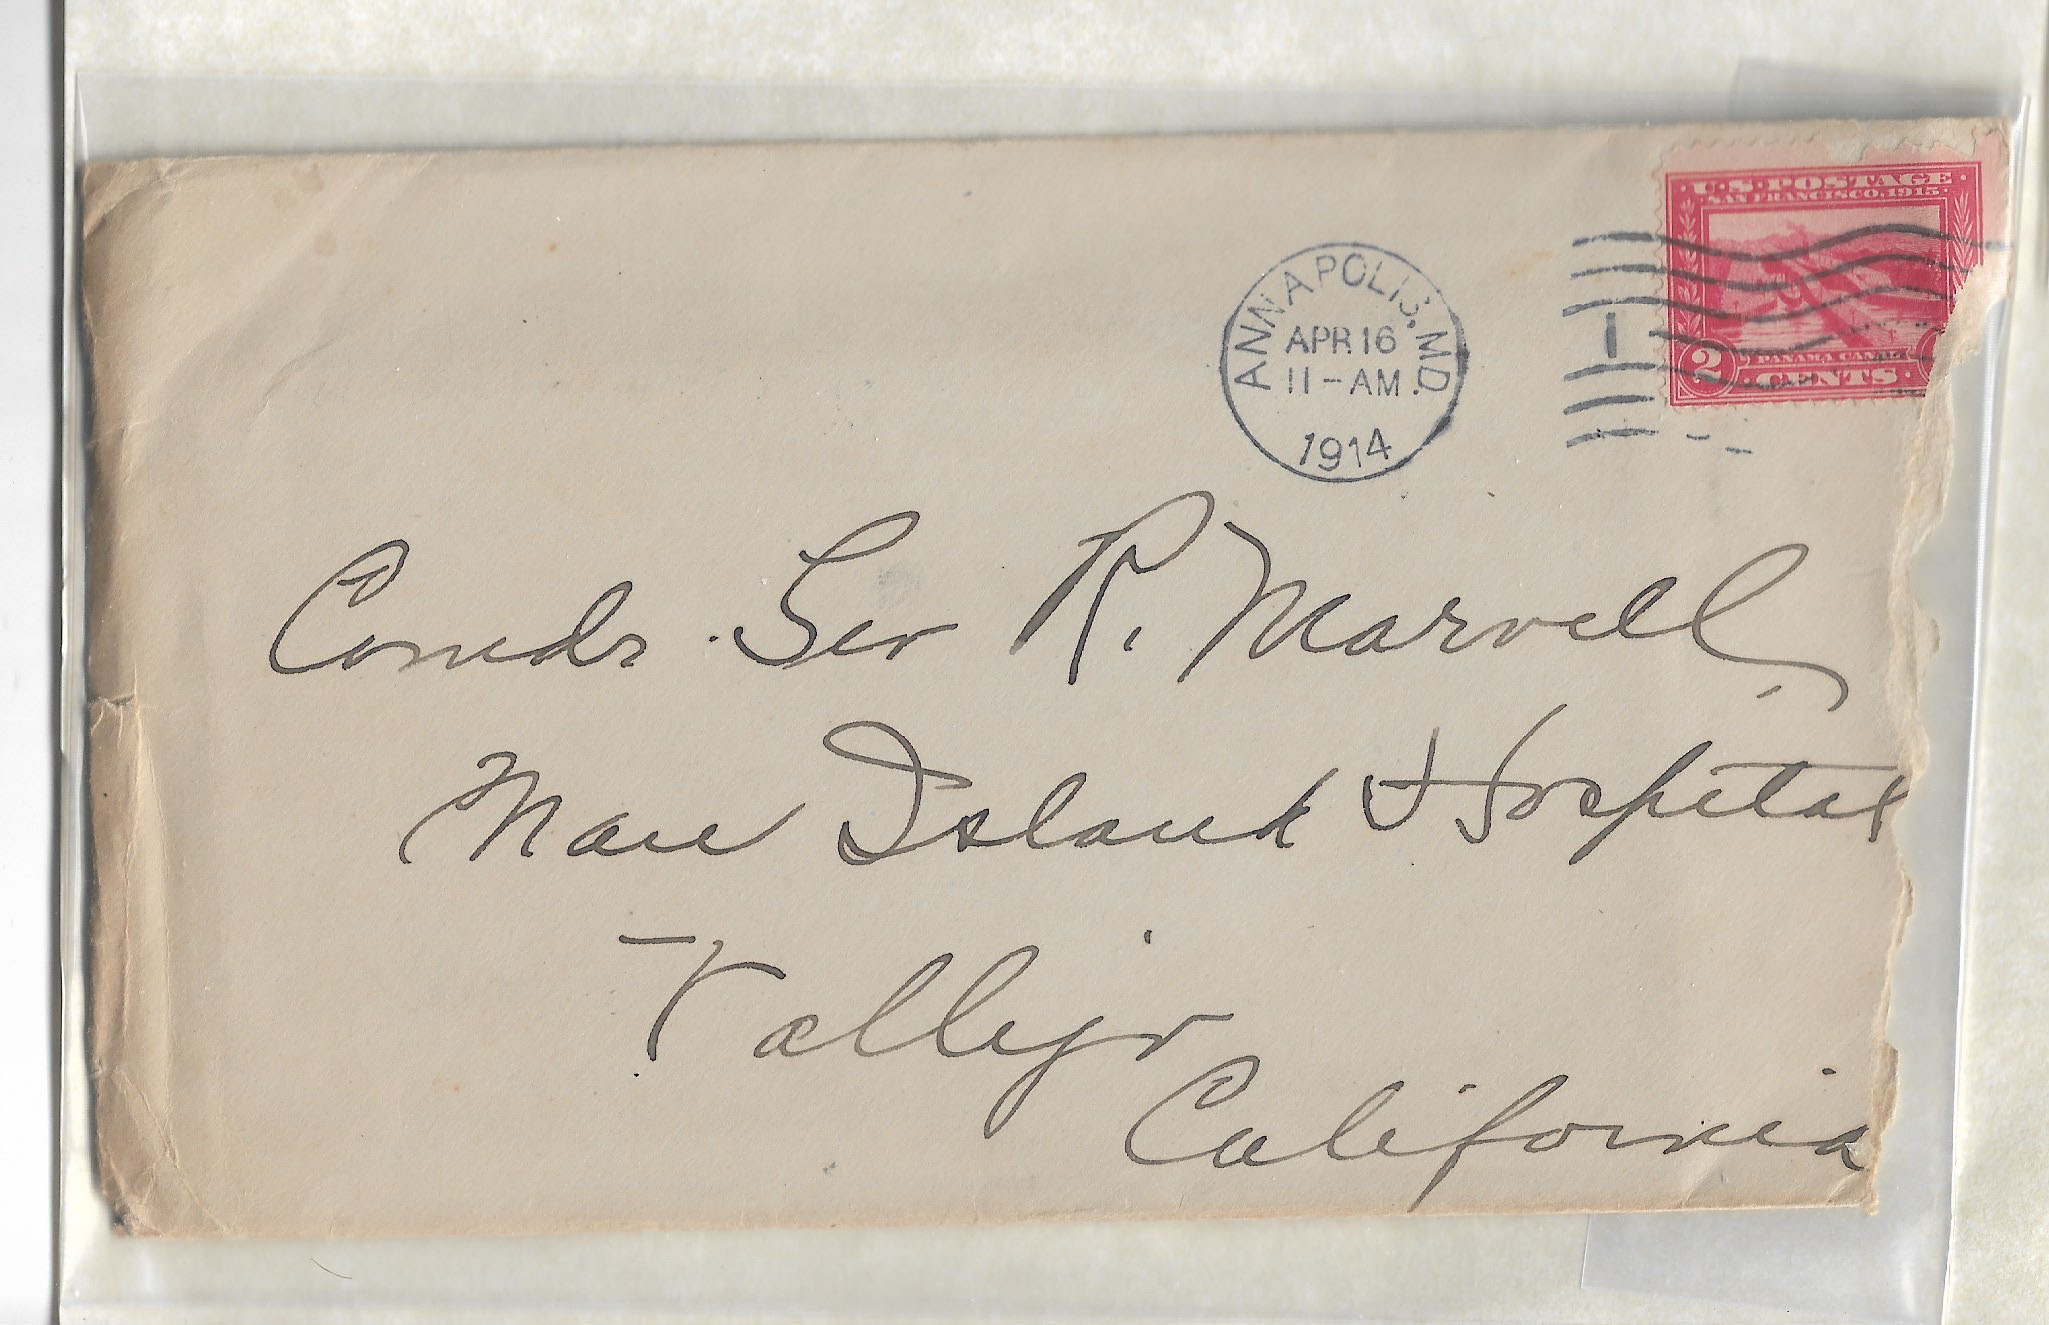 U·S·POSTAGE
SAN FRANCISCO, 1915
ANNAPOLIS, MD.
APR 16
11-AM
1914
1
2
PANAMA CANAL
CENTS
Comdr Geo R. Marvell
Mare Island Hospital
Vallejo
California